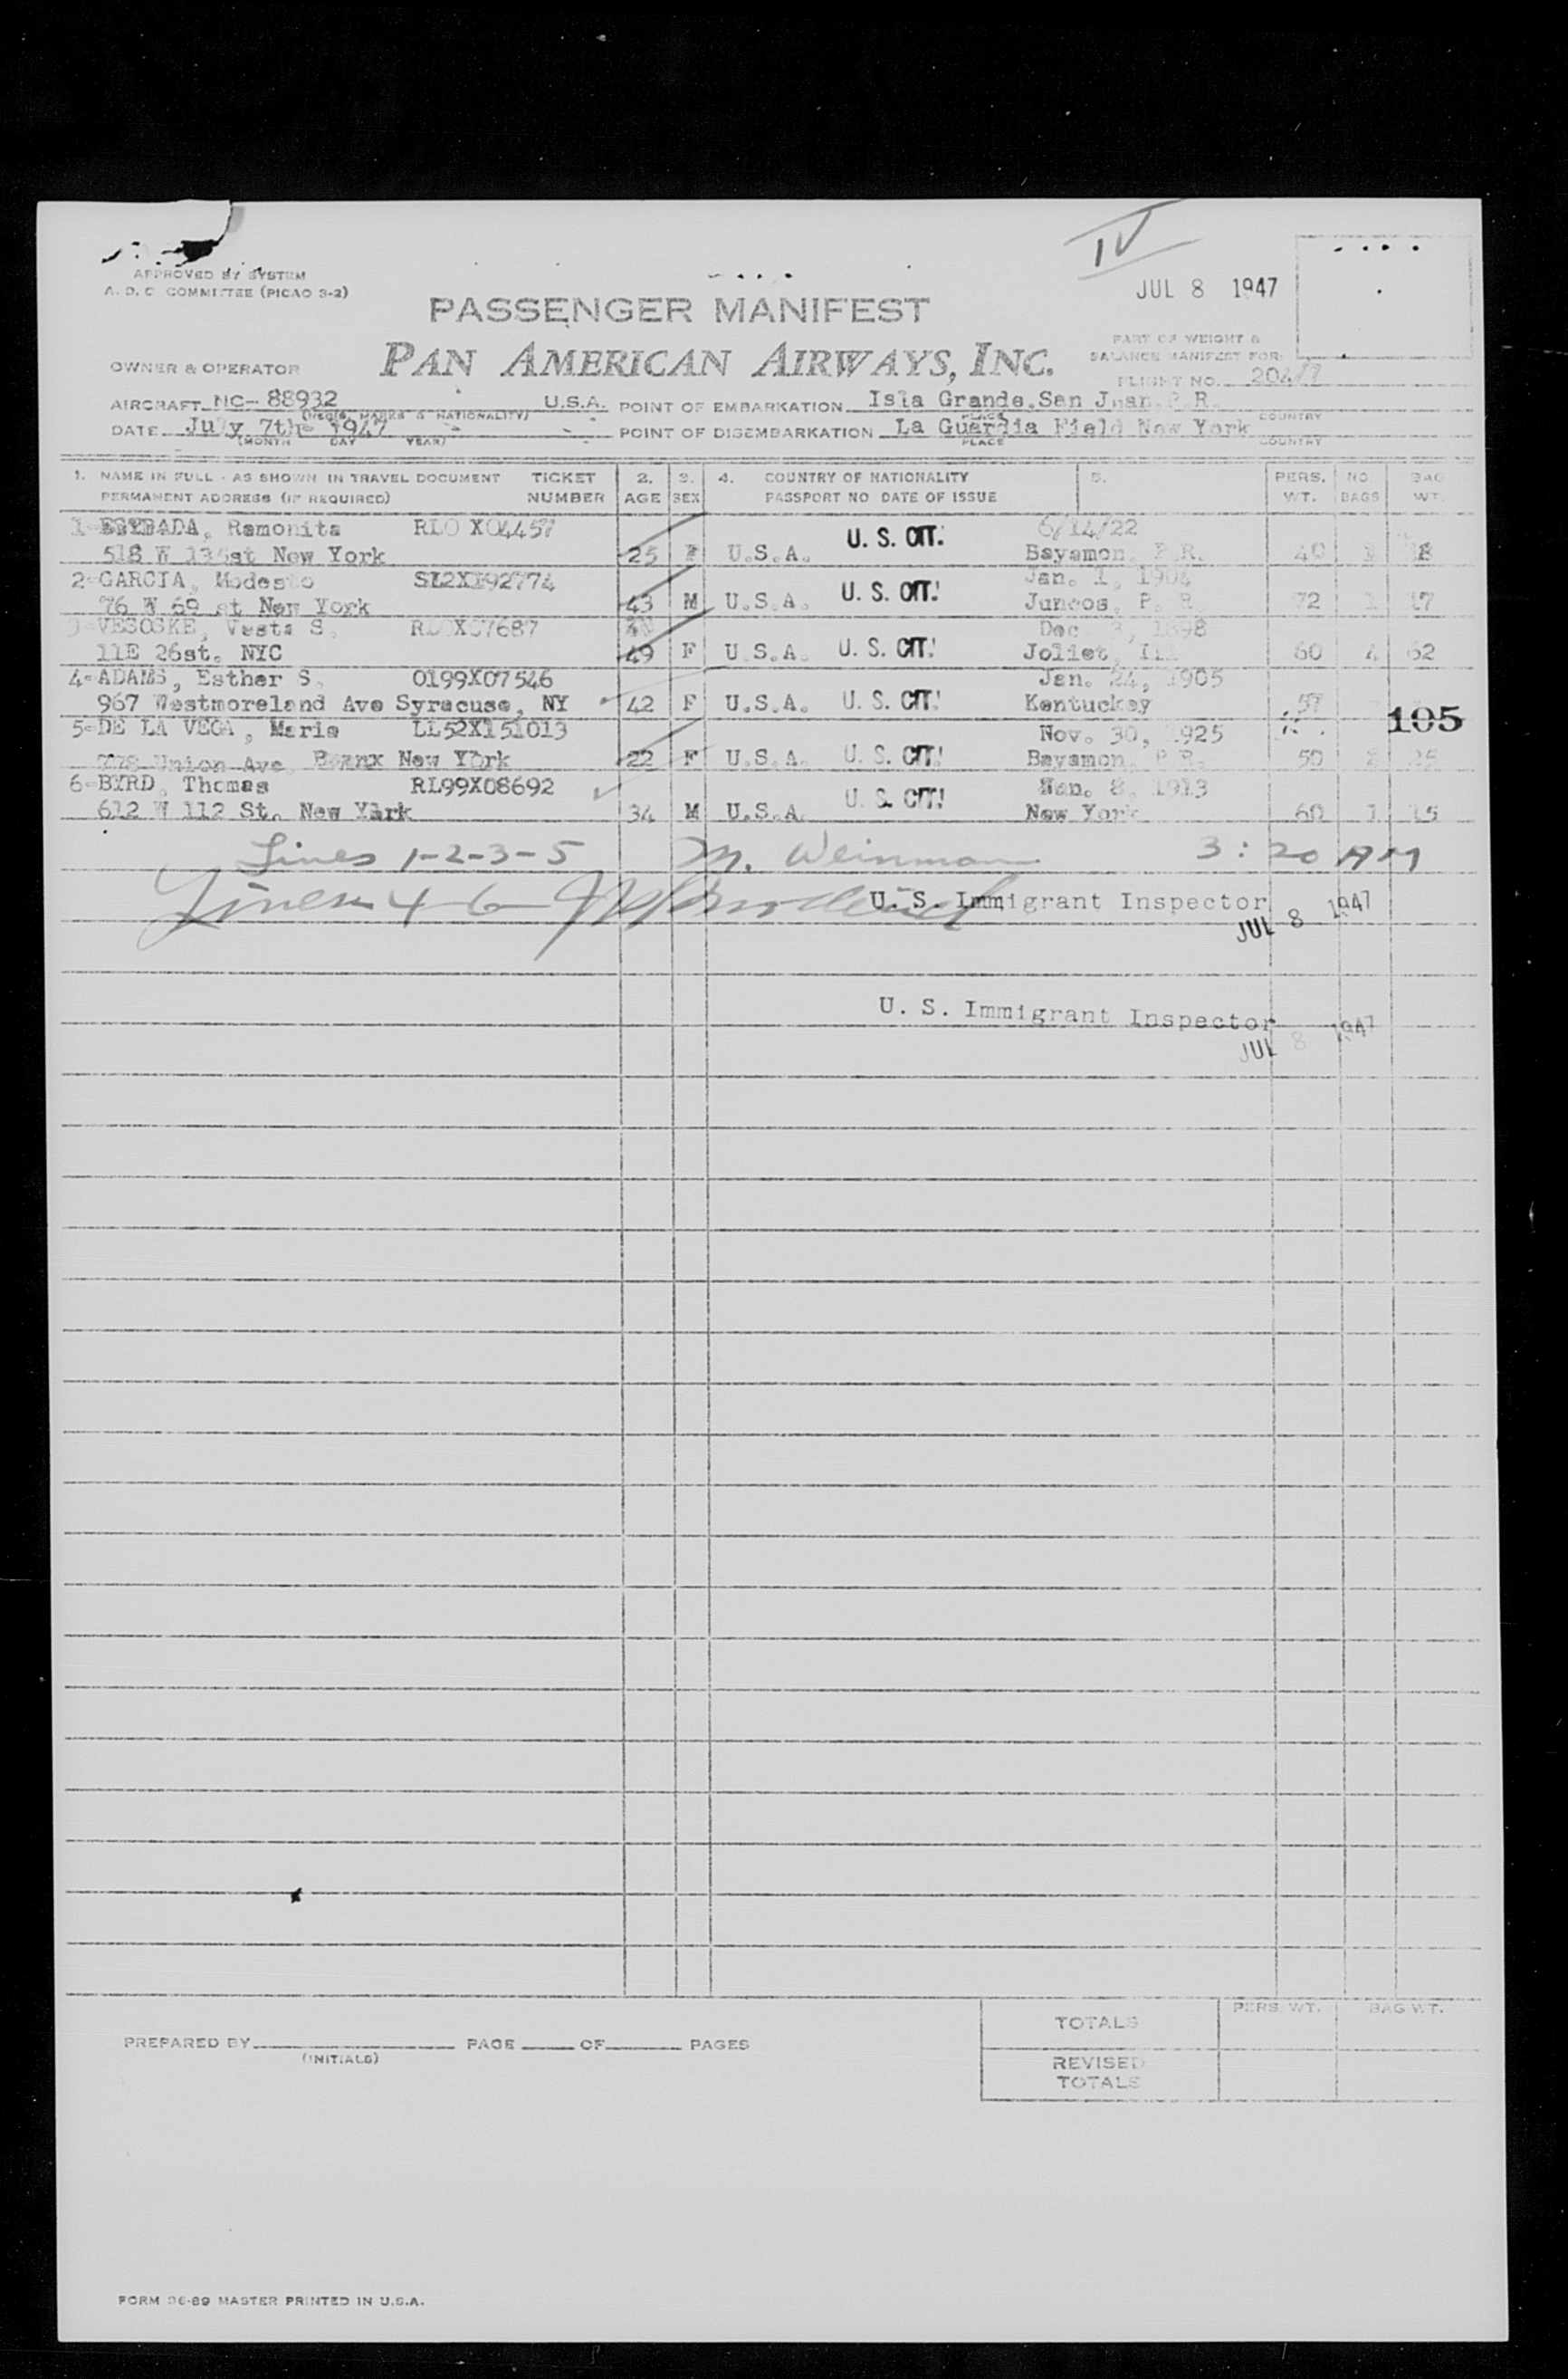 IV
APPROVED BY SYSTEM
A. D. C. COMMITTEE (PICAO 3-2)
JUL 8 1947
PASSENGER MANIFEST
PART OF WEIGHT &
BALANCE MANIFEST FOR:
OWNER & OPERATOR PAN AMERICAN AIRWAYS, INC.
FLIGHT NO.
AIRCRAFT NC- 88932 U.S.A. POINT OF EMBARKATION Isla Grande, San Juan P.R.
(REGIS. MARKS & NATIONALITY) PLACE COUNTRY
DATE July 7th- 1947 POINT OF DISEMBARKATION La Guardia Field New York
(MONTH DAY YEAR) PLACE COUNTRY
1. NAME IN FULL - AS SHOWN IN TRAVEL DOCUMENT TICKET 2. 3. 4. COUNTRY OF NATIONALITY 5. PERS. NO. BAG
PERMANENT ADDRESS (IF REQUIRED) NUMBER AGE SEX PASSPORT NO DATE OF ISSUE WT. BAGS WT.
1- Ramonita 6/14/22
518 W New York 25 F U.S.A. U. S. CIT. Bayamon, P.R. 40
2- GARCIA, Modesto Jan. 1, 1904
76 W 69 st New York 43 M U.S.A. U. S. CIT. Juncos, P. R. 72
3- VESOSKE, Vesta S. Dec 1898
11E 26st. NYC 49 F U.S.A. U. S. CIT. Joliet, Ill 60 4 62
4- ADAMS, Esther S. 0199X07546 Jan. 24, 1905
967 Westmoreland Ave Syracuse, NY 42 F U.S.A. U. S. CIT. Kentuckey 57
105
5- DE LA VEGA, Maria LL52X151013 Nov. 30, 1925
Union Ave. New York 22 F U.S.A. U. S. CIT. Bayamon, P.R. 50 25
6- BYRD, Thomas RL99X08692 8, 1913
612 W 112 St. New York 34 M U.S.A. U. S. CIT. New York 60 1 15
Lines 1-2-3-5 M. Weinman 3:20 AM
Lines 4-6
U. S. Immigrant Inspector
JUL 8 1947
U. S. Immigrant Inspector
JUL 8 1947
PERS. WT. BAG WT.
TOTALS
PREPARED BY PAGE OF PAGES
(INITIALS)
REVISED
TOTALS
FORM 36-89 MASTER PRINTED IN U.S.A.